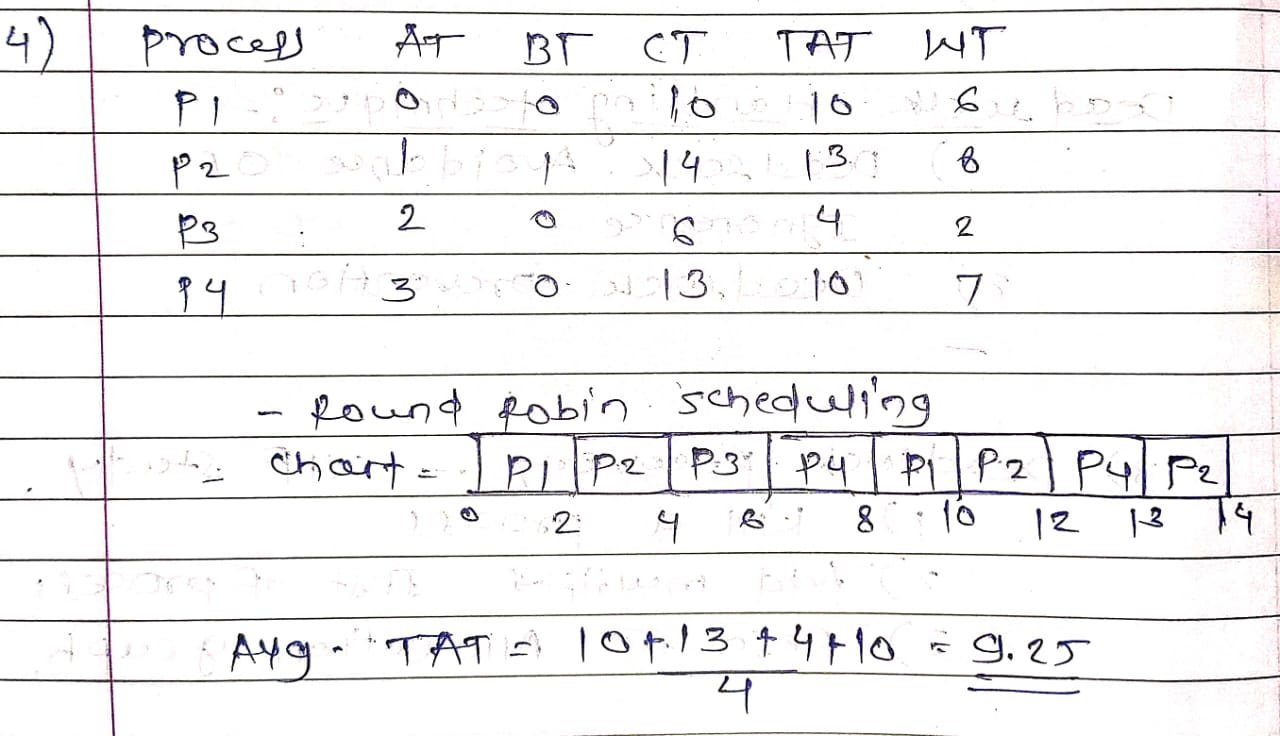 4) Process AT BT CT TAT WT
P1 0 0 10 10 6
P2 1 1 14 13 8
P3 2 0 6 4 2
P4 3 0 13 10 7
- Round Robin scheduling
= chart = P1 P2 P3 P4 P1 P2 P4 P2
0 2 4 6 8 10 12 13 14
Avg. TAT = 10+13+4+10 = 9.25
4